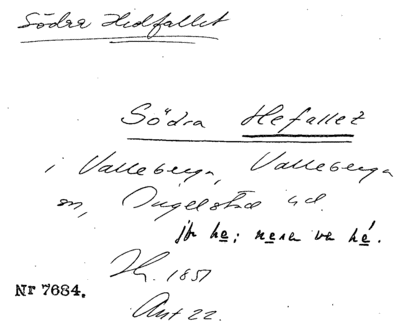 Södra Hedfallet
Södra Hefallet
i Valleberga, Valleberga
sn, Ingelstad hd.
jfr he; nera va hé.
1851
Nr 7684.
Ant 22.